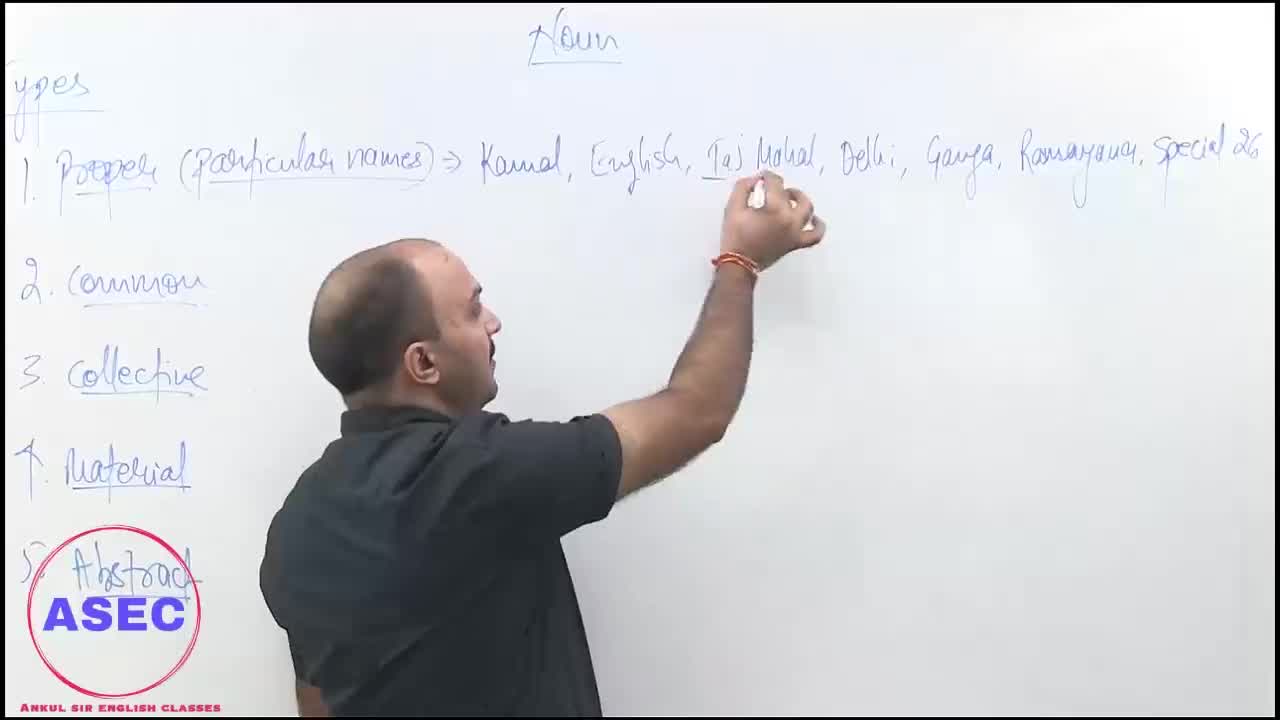 Noun
Types
1. Proper (Particular names) → Kamal, English, Taj Mahal, Delhi, Ganga, Ramayana, Special 26
2. Common
3. Collective
4. Material
5. Abstract
ASEC
ANKUL SIR ENGLISH CLASSES